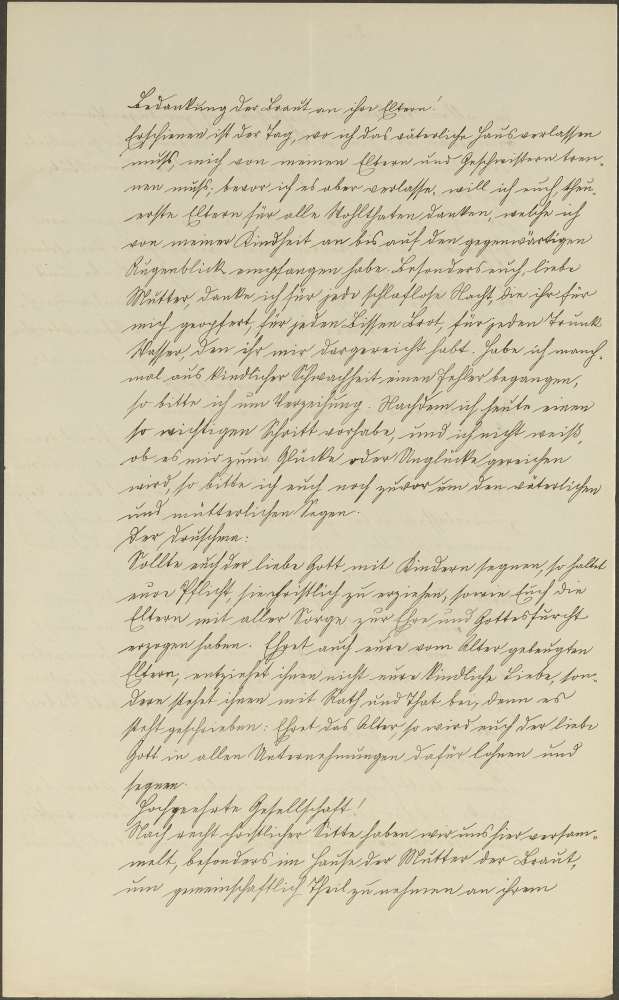 Bedankung der Braut an ihre Eltern!
Erschienen ist der Tag, wo ich das väterliche Haus verlassen
muß, mich von meinen Eltern und Geschwistern tren-
nen muß; bevor ich es aber verlasse, will ich euch, theu-
erste Eltern für alle Wohlthaten danken, welche ich
von meiner Kindheit an bis auf den gegenwärtigen
Augenblick empfangen habe. Besonders euch, liebe
Mutter, danke ich für jede schlaflose Nacht, die ihr für
mich geopfert, für jeden Bissen Brot, für jeden Trunk
Wasser, den ihr mir dargereicht habt. Habe ich manch-
mal aus kindlicher Schwachheit einen Fehler begangen,
so bitte ich um Verzeihung. Nachdem ich heute einen
so wichtigen Schritt vorhabe, und ich nicht weiß,
ob es mir zum Glücke oder Unglücke gereichen
wird, so bitte ich euch noch zuvor um den väterlichen
und mütterlichen Segen.
Der Druschma:
Sollte euch der liebe Gott mit Kindern segnen, so haltet
eure Pflicht, sie christlich zu erziehen, sowie Euch die
Eltern mit aller Sorge zur Ehre und Gottesfurcht
erzogen haben. Ehret auch eure vom Alter gebeugten
Eltern, entziehet ihnen nicht eure kindliche Liebe, son-
dern stehet ihnen mit Rath und That bei, denn es
steht geschrieben: Ehret das Alter so wird euch der liebe
Gott in allen Unternehmungen dafür lohnen und
segnen.
Hochgeehrte Gesellschaft!
Nach recht christlicher Sitte haben wir uns hier versam-
melt, besonders im Hause der Mutter der Braut,
um gemeinschaftlich Theil zu nehmen an ihrem